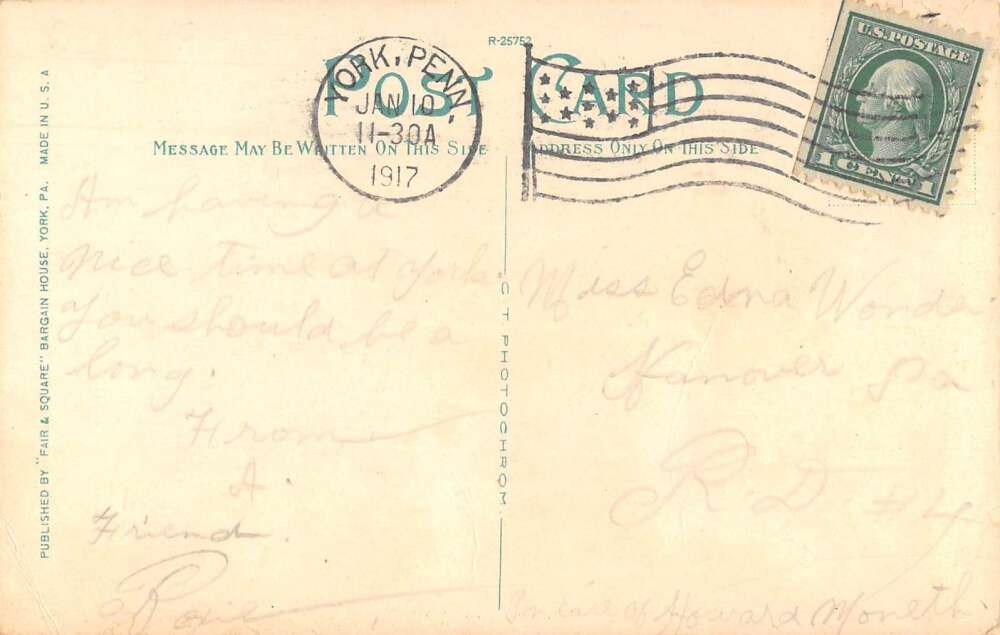 R-25752
POST CARD
YORK, PENN.
JAN 10
11-30A
1917
U.S. POSTAGE
1 CENT 1
MESSAGE MAY BE WRITTEN ON THIS SIDE
ADDRESS ONLY ON THIS SIDE
PUBLISHED BY "FAIR & SQUARE" BARGAIN HOUSE, YORK, PA. MADE IN U. S. A
C T PHOTOCHROM
Am having a
nice time at York
you should be a
long.
From
A
Friend.
Miss Edna
Hanover Pa
R D #4
In care of Howard